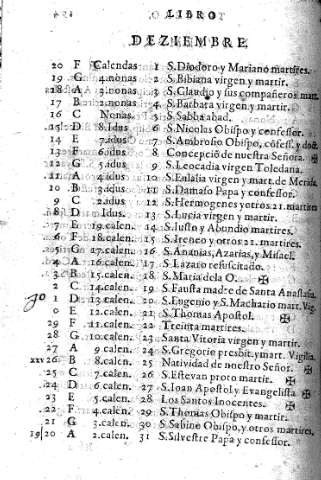 LIBRO
DEZIEMBRE.
20 F Calendas 1 S.Diodoro y Mariano martires.
19 G 4.nonas 2 S.Bibiana virgen y martir.
28 A 3.nonas 3 S.Claudio y sus compañeros mart.
17 B 2.nonas 4 S.Barbara virgen y martir.
16 C Nonas. 5 S.Sabba abad.
15 D 8.Idus. 6 S.Nicolas Obispo y confessor.
14 E 7.idus 7 S.Ambrosio Obispo, cõfess. y doct.
F 6.idus 8 Concepciõ de nuestra Señora. ✠
G 5.idus 9 S.Leocadia virgen Toledana.
11 A 4.idus 10 S.Eulalia virgen y mart. de Merida.
10 B 3.idus 11 S.Damaso Papa y confessor.
9 C 2.idus 12 S.Hermogenes y otros 21. martires
8 D Idus. 13 S.Lucia virgen y martir.
7 E 19.calen. 14 S.Iusto y Abundio martires.
6 F 18.calen. 15 S.Ireneo y otros 21. martires.
G 17.calen. 16 S.Ananias, Azarias, y Misael.
4 A 16.calen. 17 S.Lazaro resuscitado.
3 B 15.calen. 18 S.Maria dela O. ✠
2 C 14.calen. 19 S.Fausta madre de Santa Anastasia.
1 D 13.calen. 20 S.Eugenio y S.Machario mart. Vig.
0 E 12.calen. 21 S.Thomas Apostol. ✠
29 F 11.calen. 22 Treinta martires.
28 G 10.calen. 23 Santa Vitoria virgen y martir.
27 A 9 calen. 24 S.Gregorio presbit.y mart. Vigilia.
xxv 26 B 8.calen. 25 Natividad de nuestro Señor. ✠
25 C 7.calen. 26 S.Estevan proto martir. ✠
24 D 6 calen. 27 S.Ioan Apostol y Evangelista ✠
23 E 5.calen. 28 Los Santos Inocentes. ✠
22 F 4.calen. 29 S.Thomas Obispo y martir.
21 G 3.calen. 30 S.Sabino Obispo, y otros martires.
19|20 A 2.calen. 31 S.Silvestre Papa y confessor.